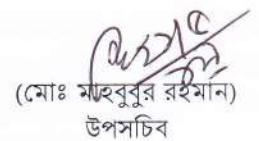 (মোঃ মাহবুবুর রহমান)
উপসচিব